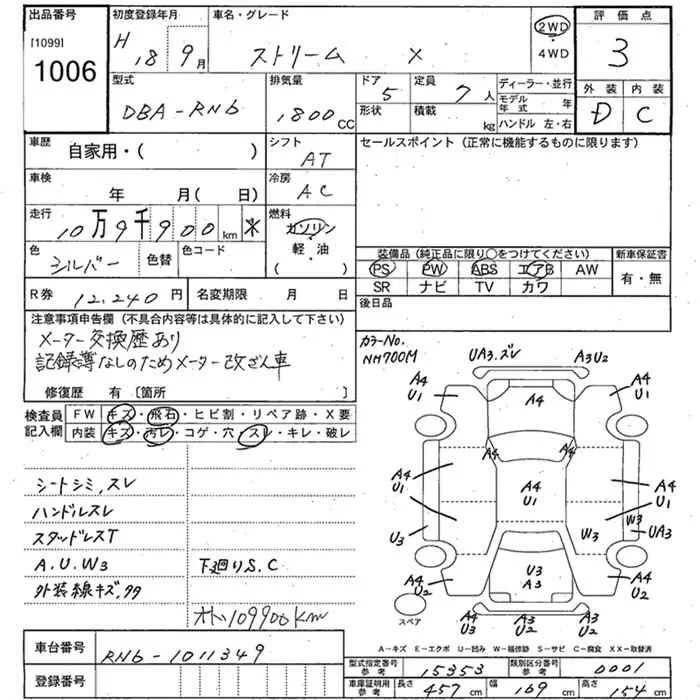 出品番号
[1099]
1006
初度登録年月
H 18 9月
車名・グレード
ストリーム X
2WD
・
4WD
評価点
3
外装 内装
D C
型式
DBA-RN6
排気量
1800cc
ドア
5
定員
7人
形状
積載
kg
ディーラー・並行
モデル年式 年
ハンドル 左・右
車歴
自家用・( )
シフト
AT
セールスポイント (正常に機能するものに限ります)
車検
年 月(日)
冷房
AC
走行
10万9千900km *
燃料
ガソリン
軽・油
( )
色
シルバー
色替
色コード
装備品 (純正品に限り○をつけてください)
新車保証書
PS PW ABS エアB AW
SR ナビ TV カワ
有・無
R券
12,240円
名変期限 月 日
後日品
注意事項申告欄 (不具合内容等は具体的に記入して下さい)
メーター交換歴あり
記録簿なしのためメーター改ざん車
修復歴 有 〔箇所 〕
カラーNo.
NH700M
検査員記入欄
FW キズ・飛石・ヒビ割・リペア跡・X要
内装 キズ・汚レ・コゲ・穴・スレ・キレ・破レ
シートシミ,スレ
ハンドルスレ
スタッドレスT
A.U.W3
下廻りS.C
外装線キズ,タタ
オド109900km
UA3.ズレ
A3U2
A4
U1
A4
A4
U1
A4
A4
A4
U1
A4
U1
A4
U1
U3
W3
W3
UA3
A4
U2
U3
A3
A4
U2
A4
U3
A4
U2
スペア
A-キズ E-エクボ U-凹み W-補修跡 S-サビ C-腐食 XX-取替済
車台番号
RN6-1011349
登録番号
型式指定番号
参考
15353
類別区分番号
参考
0001
車庫証明用
参考
長さ 457cm
幅 169cm
高さ 154cm